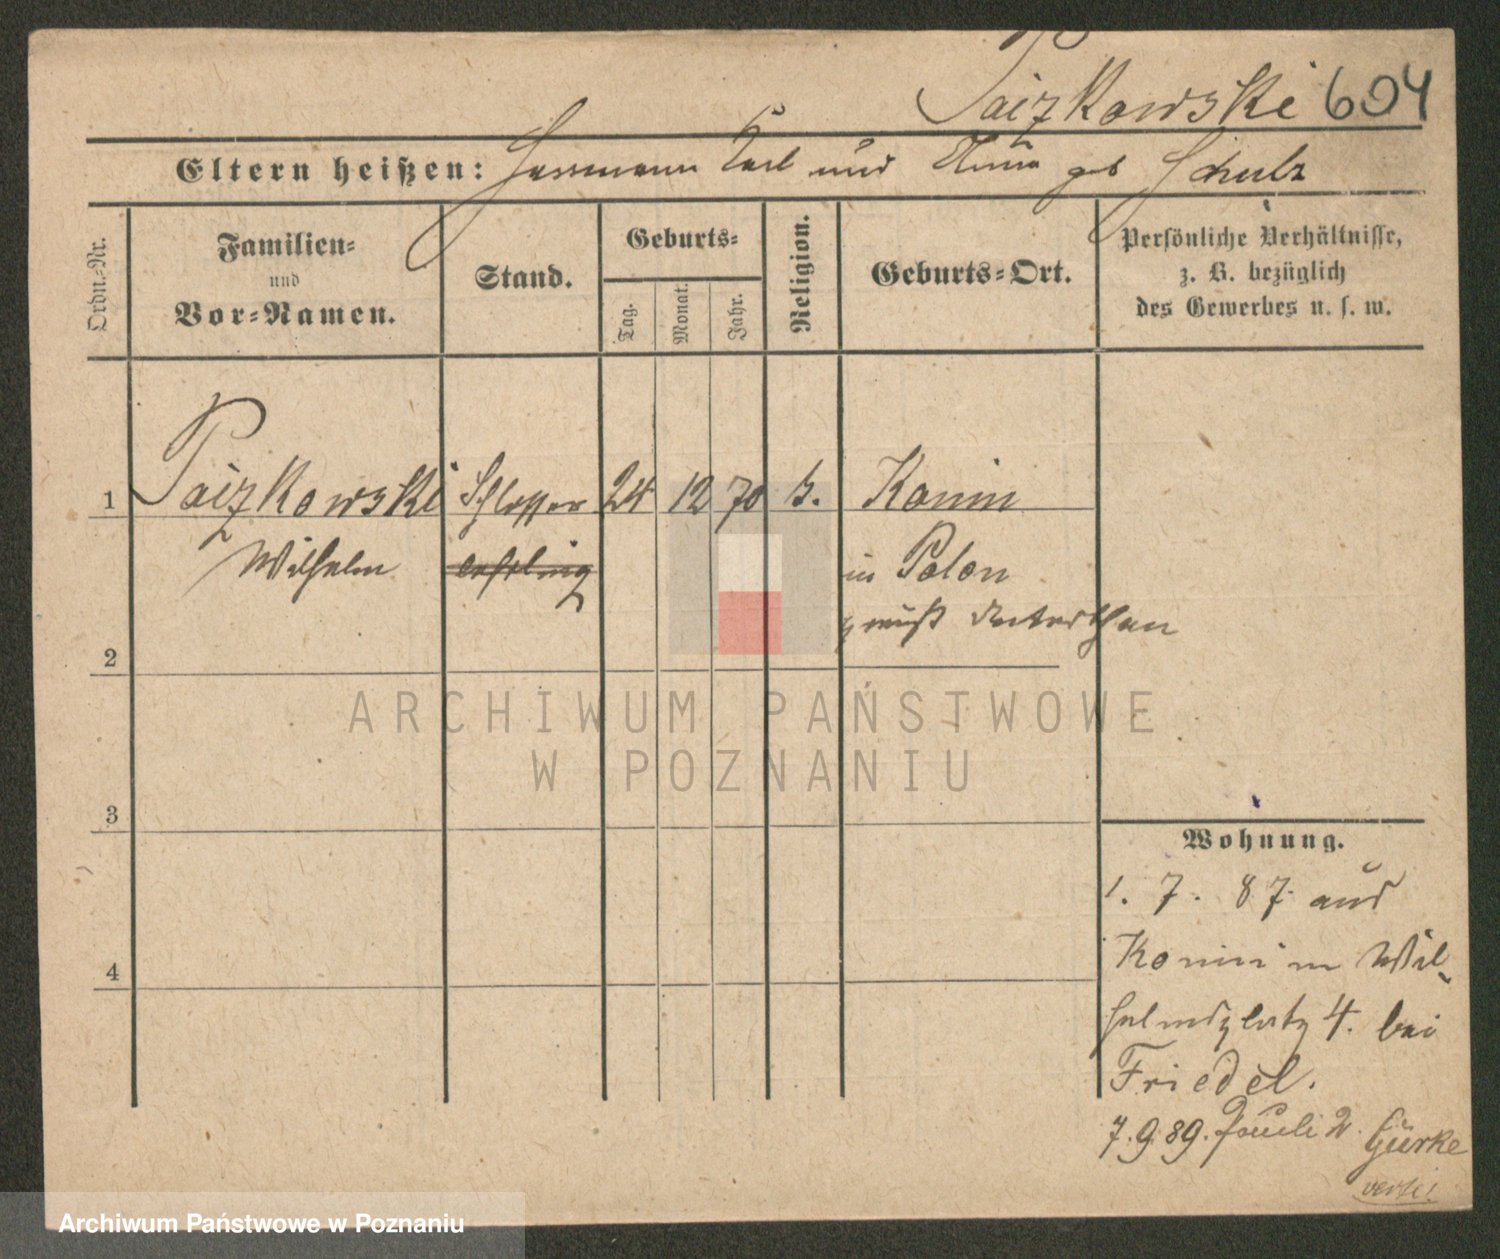 Paizkowski 694
Eltern heißen: Herrmann Karl und Anna geb Schulz
Ordn.-Nr.
Familien- und Vor-Namen.
Stand.
Geburts-
Tag.
Monat.
Jahr.
Religion.
Geburts-Ort.
Persönliche Verhältnisse,
z. B. bezüglich
des Gewerbes u. s. w.
1 Paizkowski Schlosser 24 12 70 k. Konin
Wilhelm lehrling in Polen
preuß Unterthan
2
3
4
Wohnung.
1. 7. 87 aus
Konin Wil-
helmsplatz 4. bei
Friedel.
7. 9. 89. Pauli 2. Gürke
verte!
ARCHIWUM PAŃSTWOWE
W POZNANIU
Archiwum Państwowe w Poznaniu